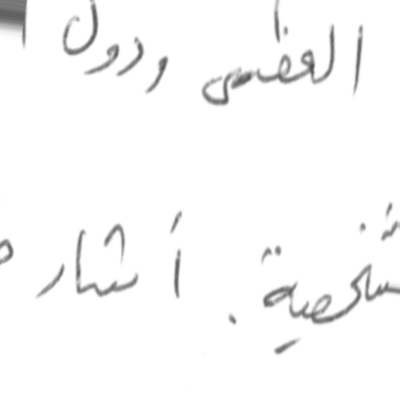 العظمى ودول
شخصية. أشار